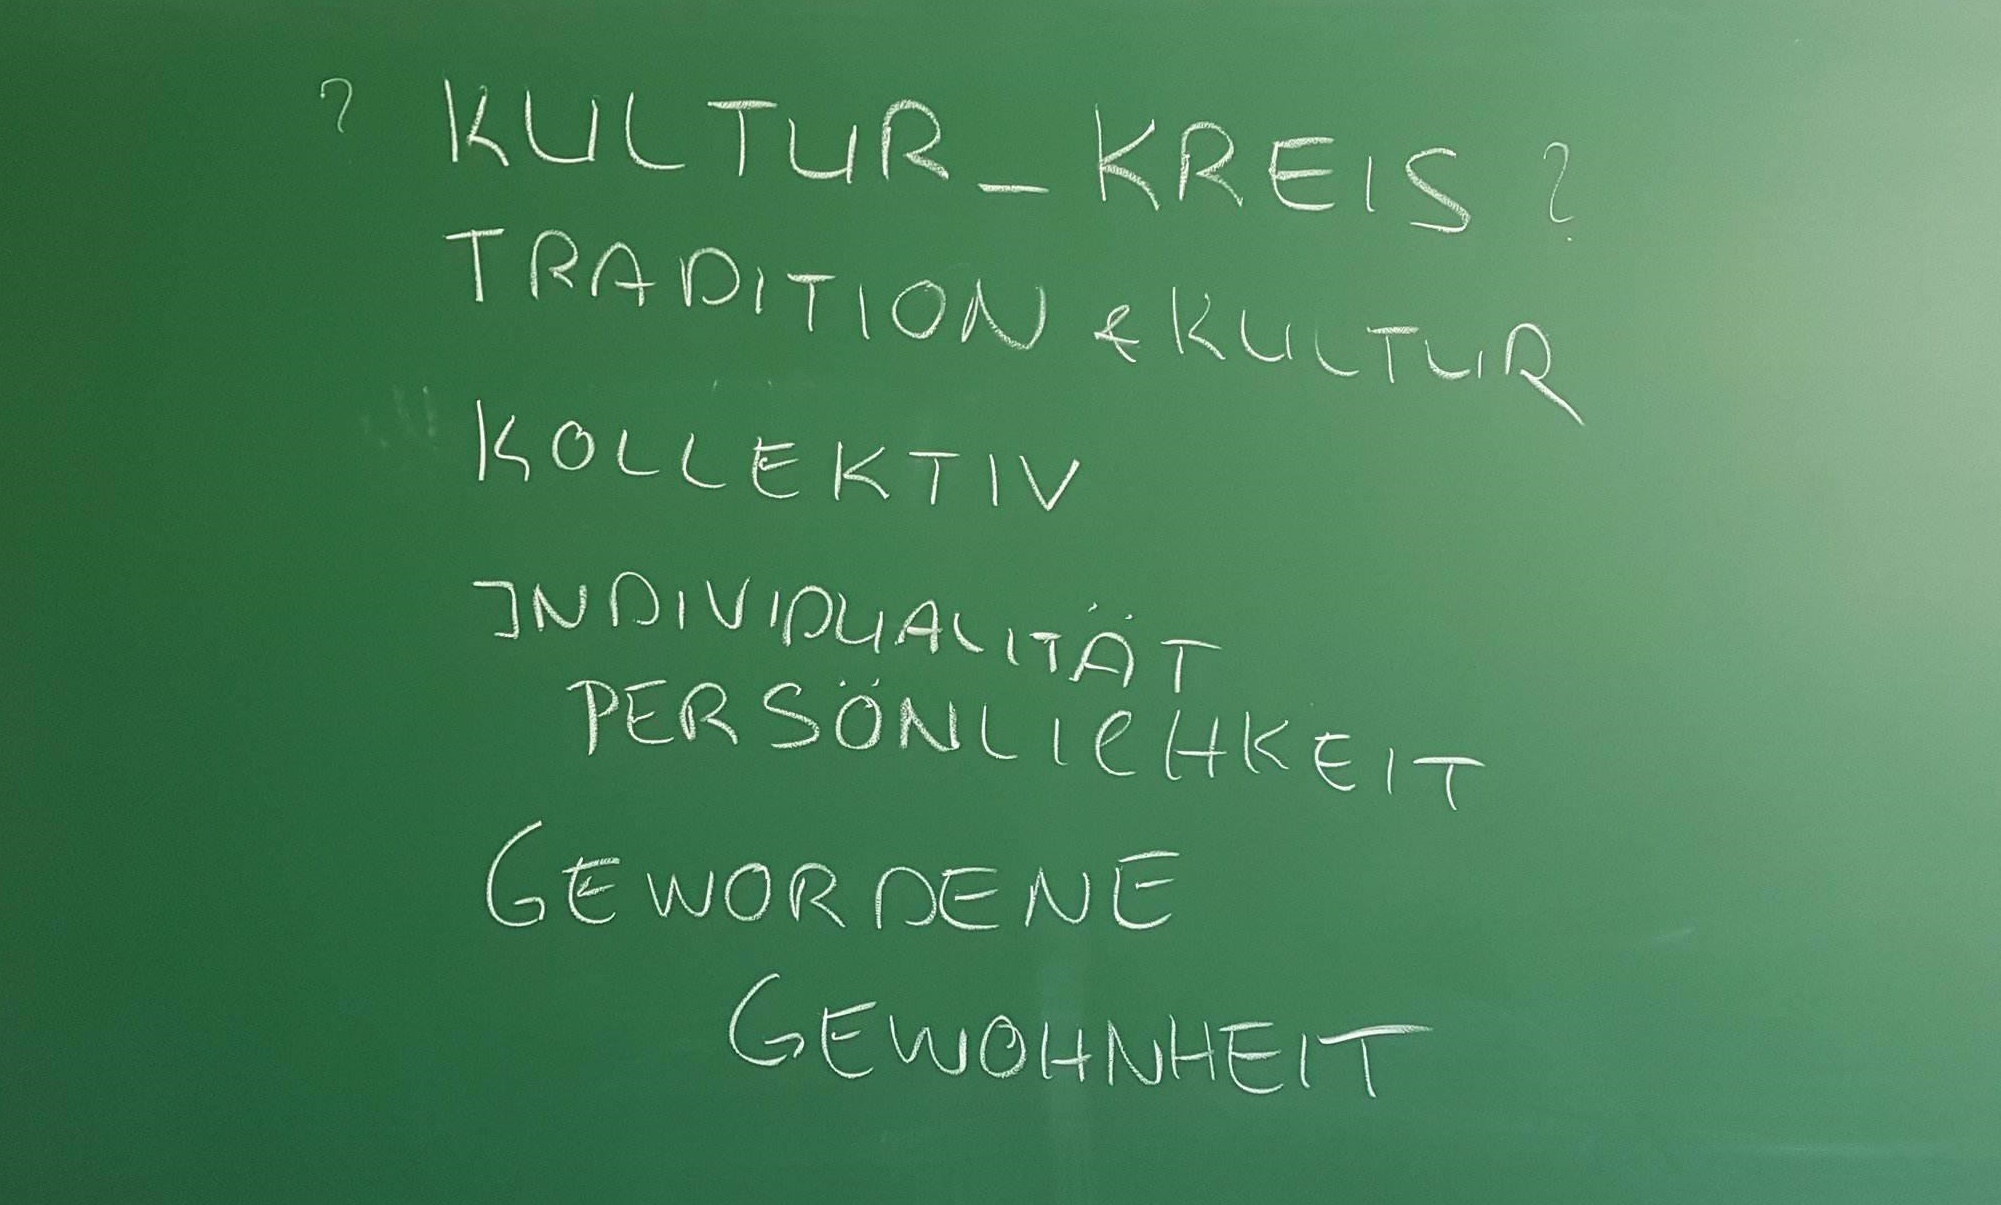 ? KULTUR_KREIS ?
TRADITION & KULTUR
KOLLEKTIV
INDIVIDUALITÄT
PERSÖNLICHKEIT
GEWORDENE
GEWOHNHEIT